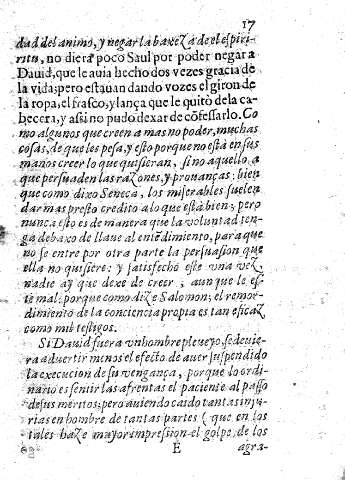 17
dad del animo, y negar la baxeza de el espiri-
ritu, no diera poco Saul por poder negar a
Dauid, que le auia hecho dos vezes gracia de
la vida; pero estauan dando vozes el giron de
la ropa, el frasco, y lança que le quitò de la ca-
becera, y assi no pudo dexar de cõfessarlo. Co
mo algunos que creen a mas no poder, muchas
cosas, de que les pesa, y esto porque no està en sus
manos creer lo que quisieran, sino aquello a
que persuaden las razones, y prouanças: bien
que como dixo Seneca, los miserables suelen
dar mas presto credito a lo que està bien; pero
nunca esto es de manera que la voluntad ten-
ga debaxo de llaue al entẽdimiento, para que
no se entre por otra parte la persuasion que
ella no quisiere: y satisfecho este vna vez,
nadie ay que dexe de creer, aunque le es-
te mal: porque como dize Salomon; el remor-
dimiento de la conciencia propia es tan eficaz
como mil testigos.
Si Dauid fuera vn hombre pleueyo, se deuie-
ra aduertir menos el efecto de auer suspendido
la execucion de su vengança, porque lo ordi-
nario es sentir las afrentas el paciente al passo
de sus meritos; pero auiendo caido tantas inju-
rias en hombre de tantas partes ( que en los
tales haze mayor impression el golpe de los
E
agra-